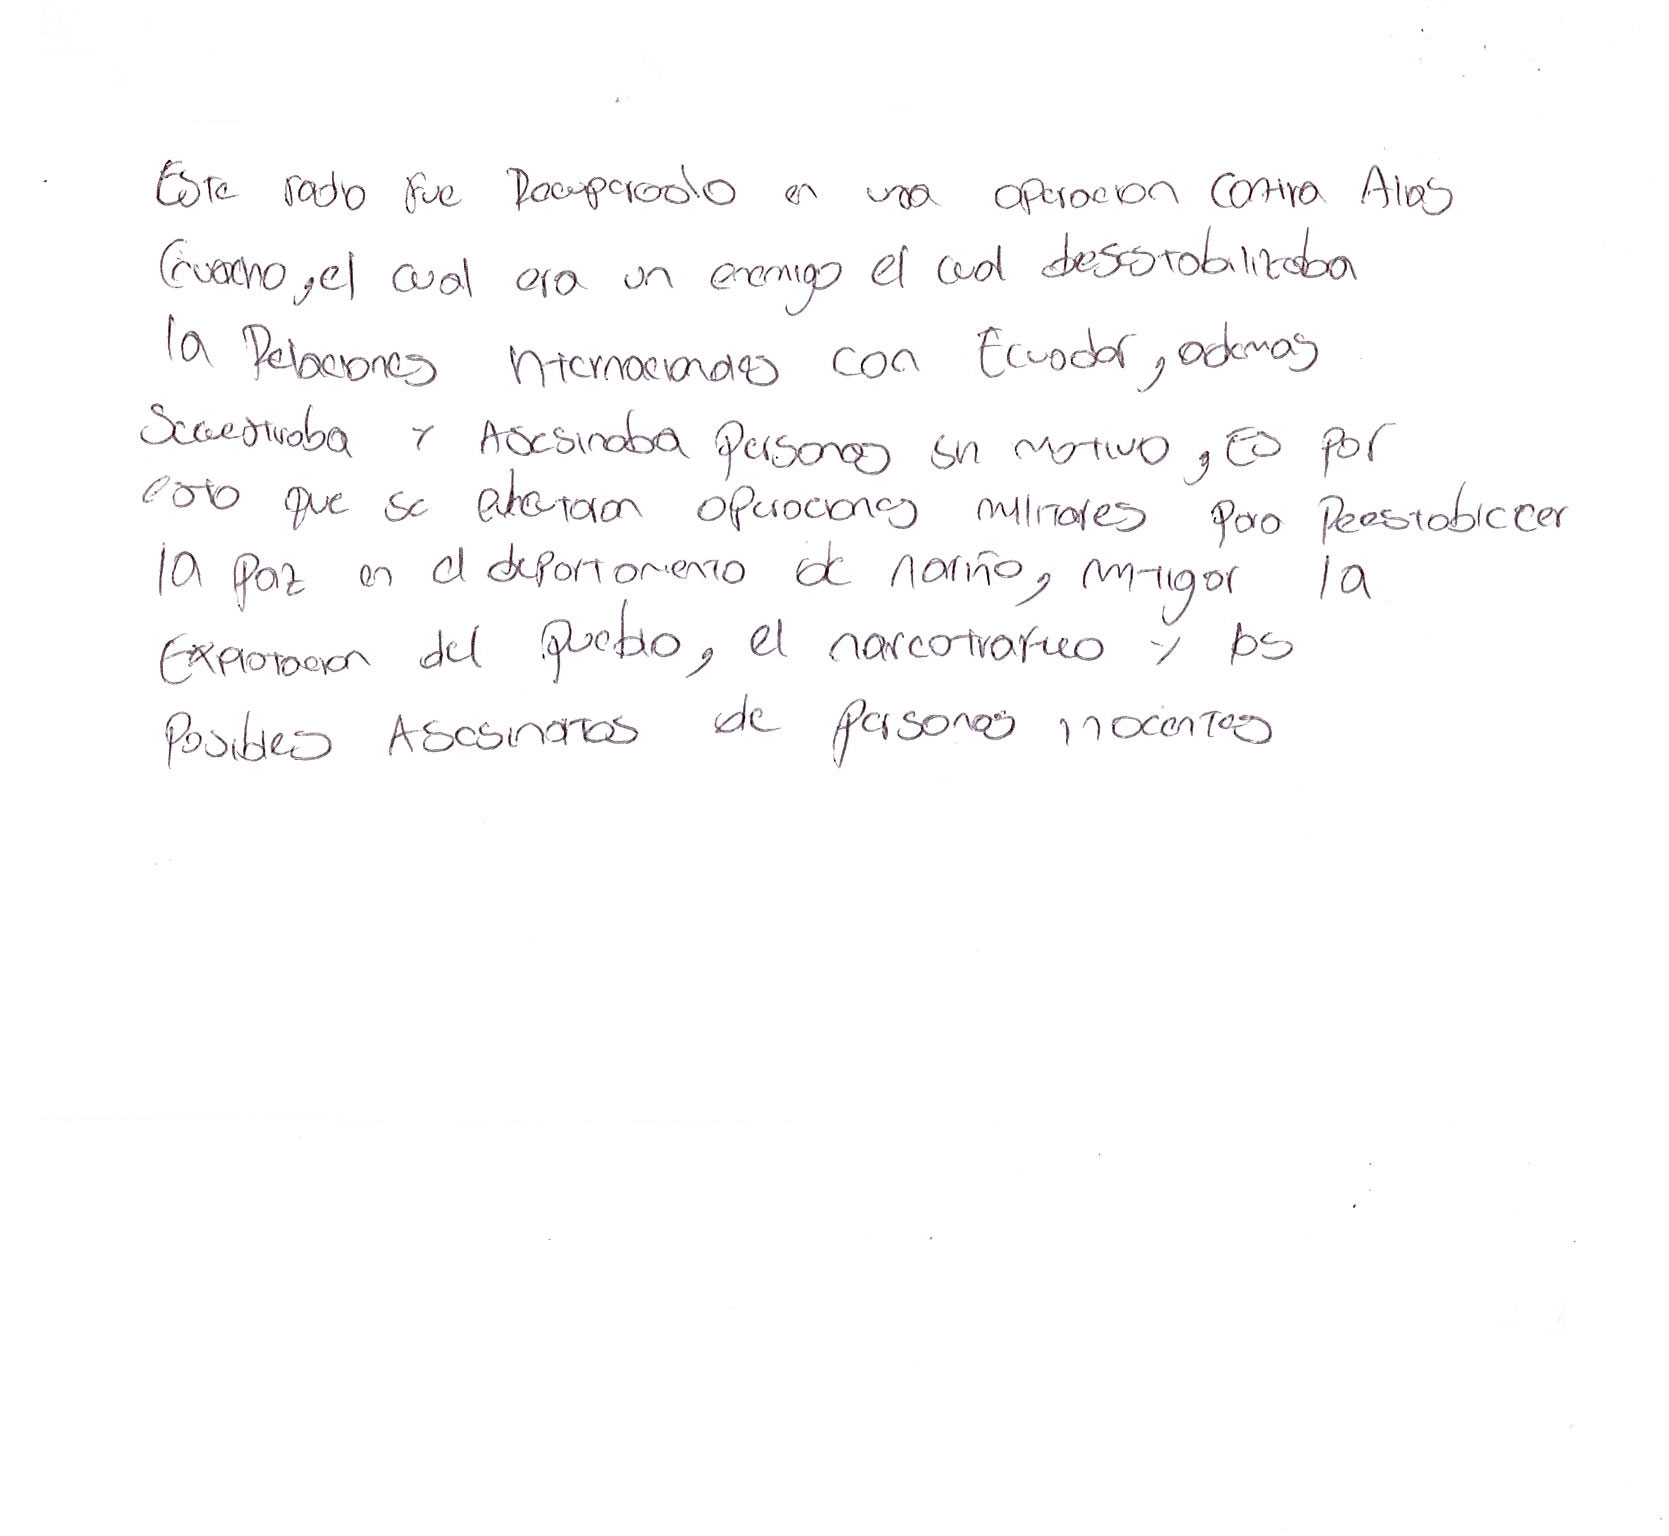 Este radio fue Recuperado en una operacion contra Alias
Guacho, el cual era un enemigo el cual desestabilizaba
la Relaciones internacionales con Ecuador, ademas
Secuestraba y Asesinaba personas sin motivo, Es por
esto que se operaciones militares para Reestableccer
la paz en el departamento de nariño, mitigar la
Explotacion del pueblo, el narcotrafico y los
posibles Asesinatos de personas inocentes